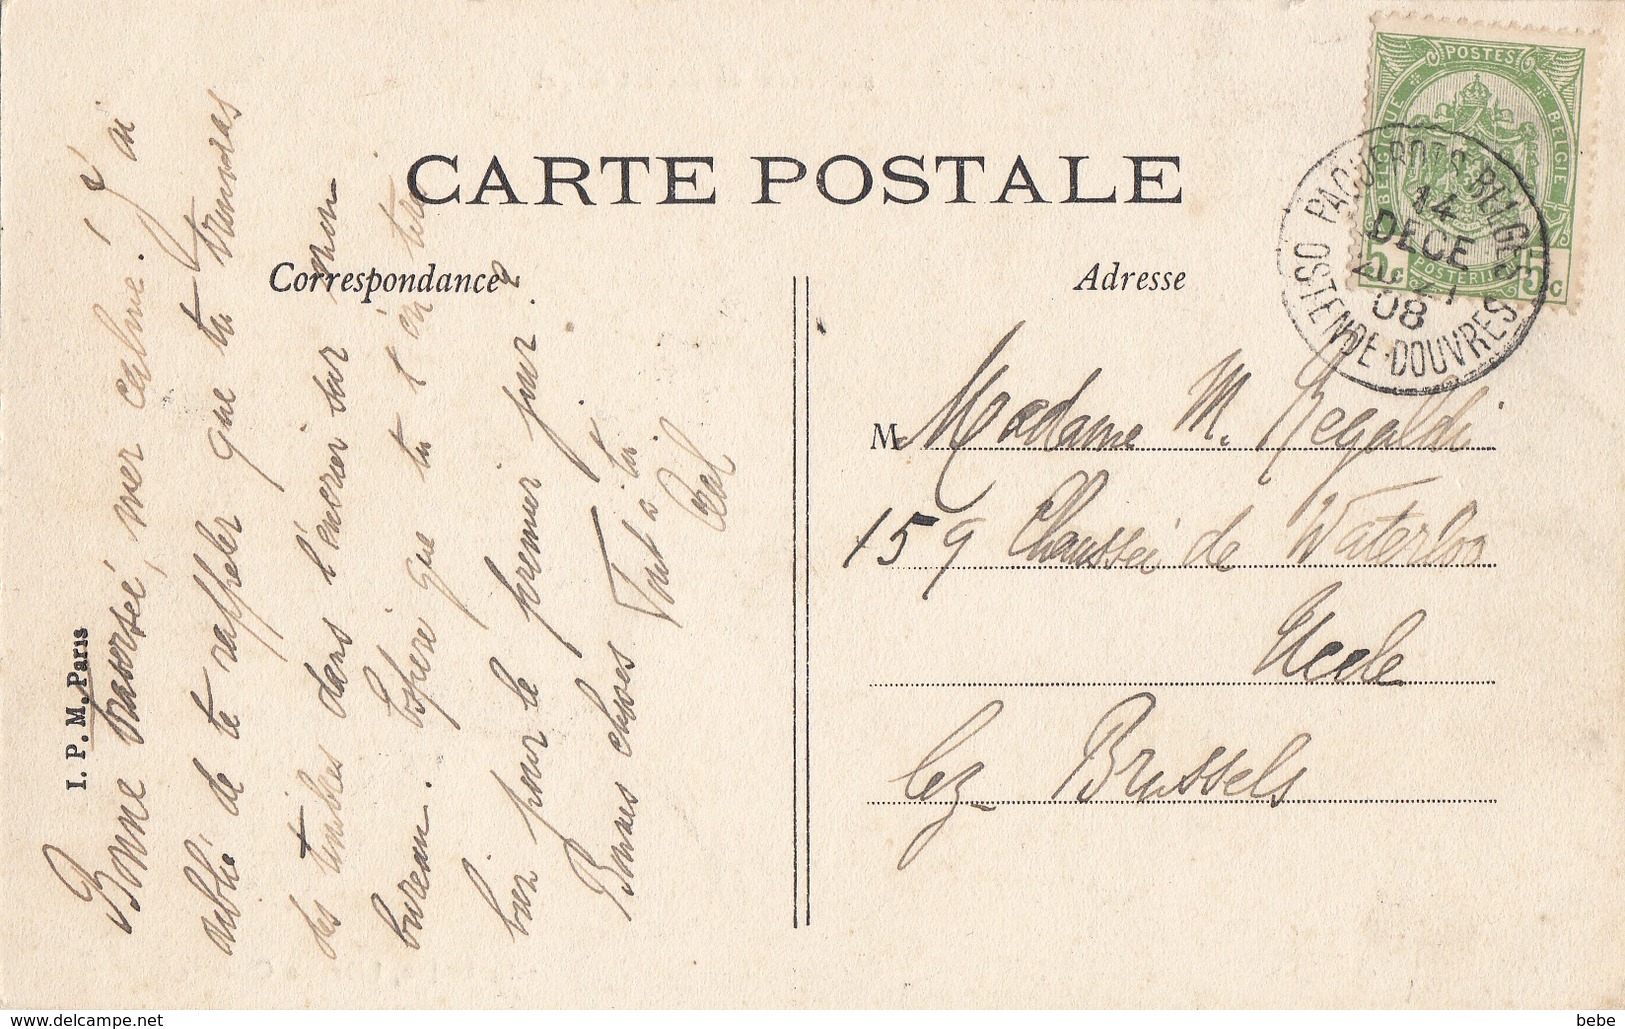 CARTE POSTALE
Correspondance
Adresse
I. P. M. Paris
Bonne traversée, mer calme! J'ai
oublié de te rappeler que tu trouveras
des timbres dans l'encrier sur mon
bureau. J'espère que tu t'en tires
bien pour le premier jour.
Bonnes choses
Tout à toi
M
Madame M. Regaldi
159 Chaussée de Waterloo
Uccle
lez-Brussels
POSTES
BELGIQUE
BELGIE
POSTERIJEN
5c
5c
PAQUEBOTS-BELGES
OSTENDE-DOUVRES
14
DECE
08
delcampe.net
bebe